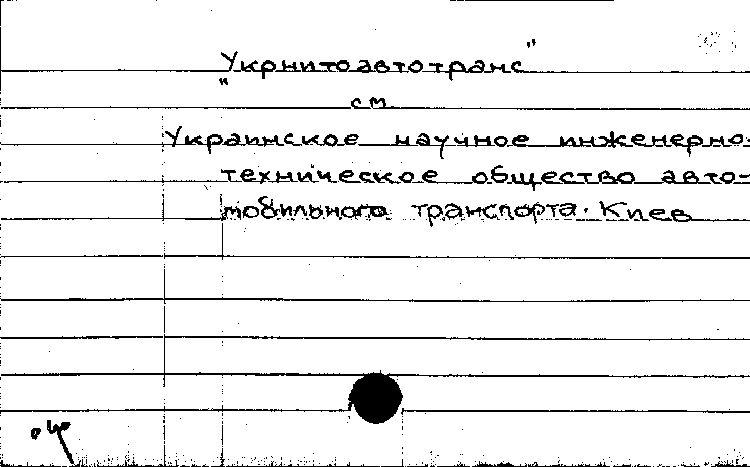 "Укрнитоавтотранс"
см.
Украинское научное инженерно-
техническое общество авто-
мобильного транспорта. Киев